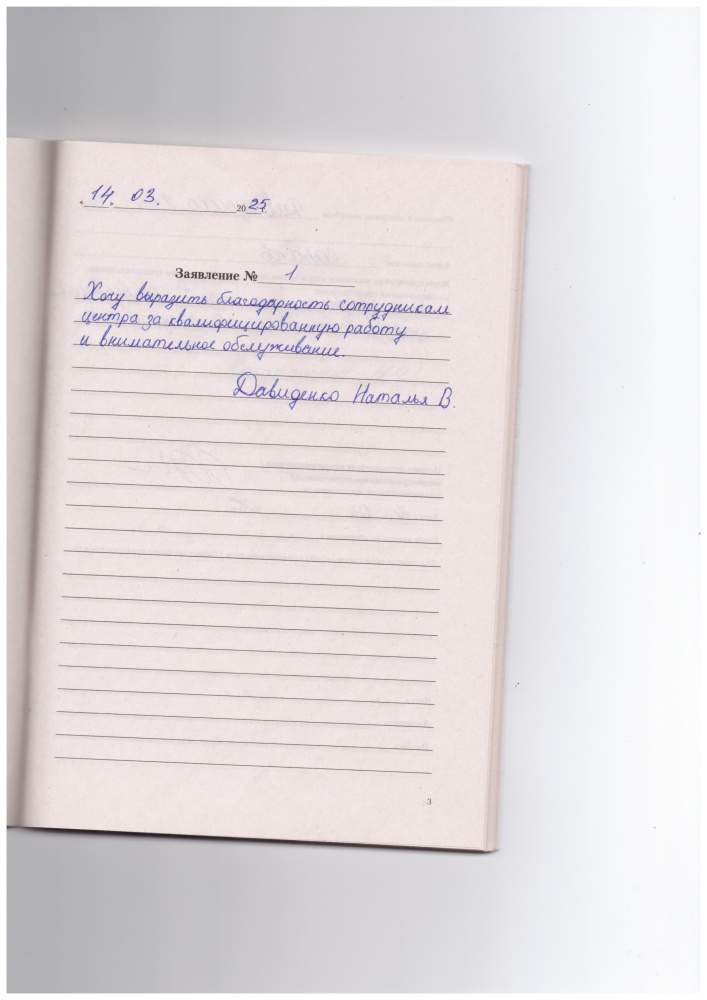 14. 03. 2025
Заявление № 1
Хочу выразить благодарность сотрудникам
центра за квалифицированную работу
и внимательное обслуживание.
Давиденко Наталья В.
3